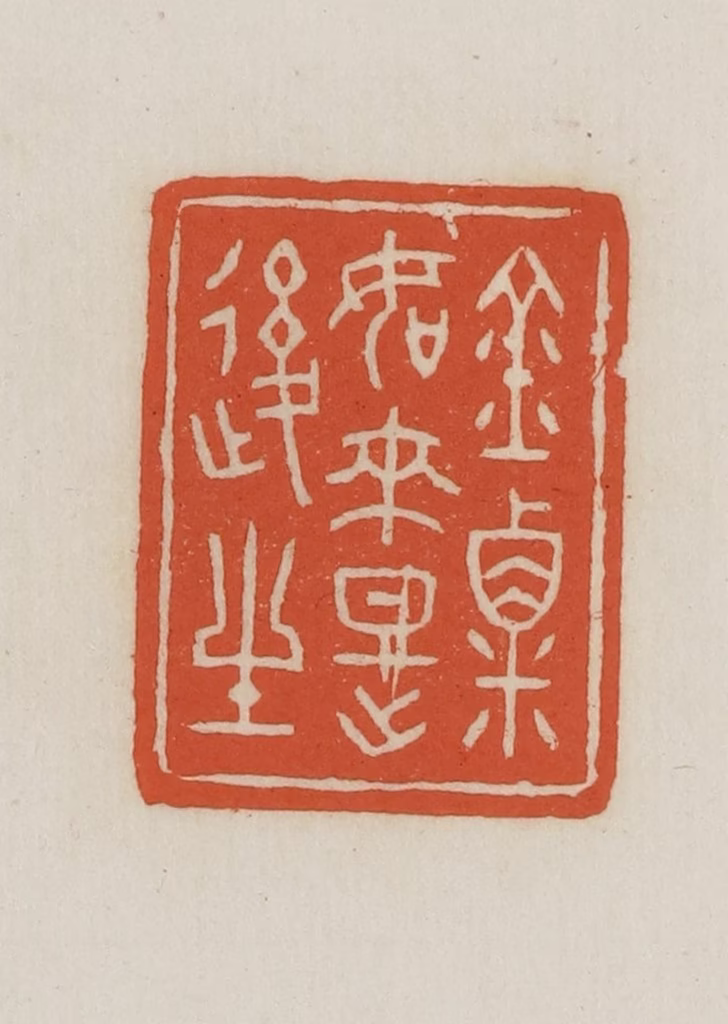 金粟
如來是
後生